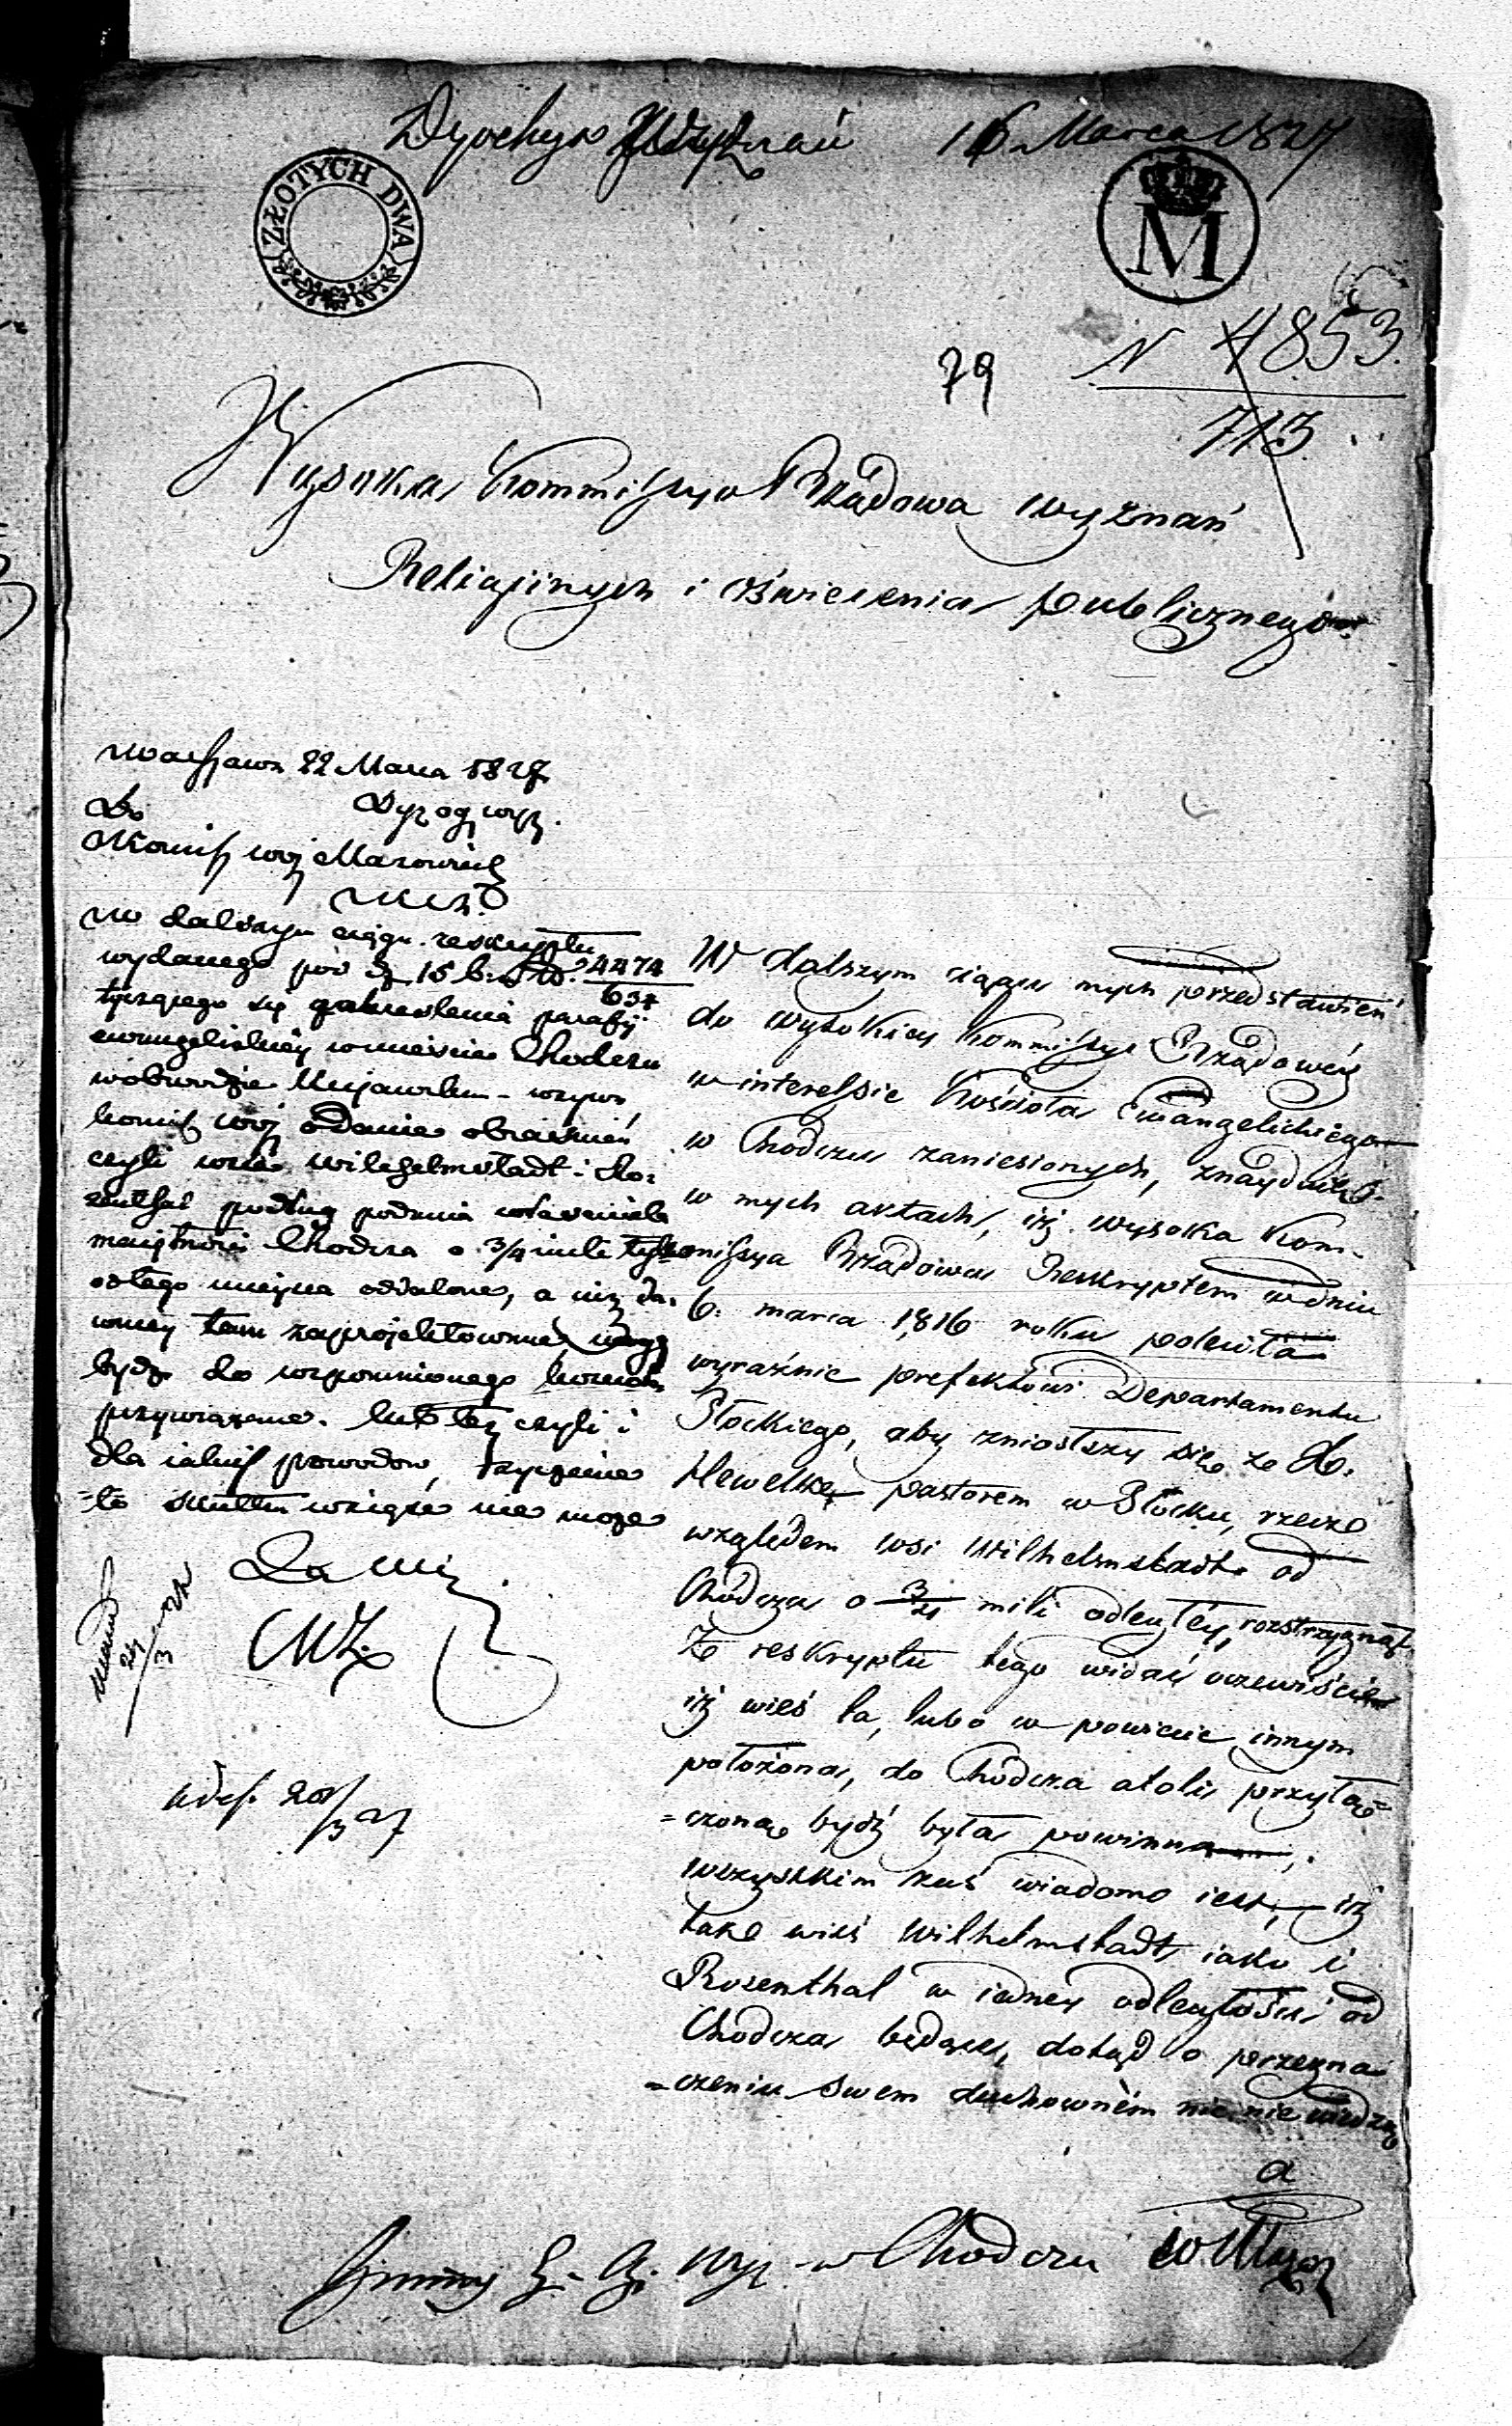 16 Marca 1827
ZŁOTYCH DWA
M
N 4853
713
79
Wysoka Kommissya Rządowa wyznań
Religijnych i oświecenia publicznego
Warszawa 22 Marca 1827
Do
Kommiss woj Mazowieck
W dalszym ciągu reskryptu
wydanego pod d 15 b. 4474
637
tyczącego się zakreślenia parafij
ewangelickiey w mieście Chodczu
w obwodzie Kujawskim - wzywa
komiss woj o danie obiaśnień
czyli wsie Wilhelmstadt i Ro=
zenthal podług podania właściciela
maiętności Chodcza o 3/4 mile tylko
od tego mieysca oddalone, a niż da
wniey tam zaprojektowane, mogą
bydź do wspomnionego kościoła
przywiązane. lub też czyli i
dla jakich powodów, życzenie
=to skutku wziąść nie może
W dalszym ciągu mych przedstawień
do wysokiey Kommissyi Rządowéy
w interessie Kościoła Ewangelickiego
w Chodczu zaniesionych, znayduię
w mych aktach, iż wysoka Kom-
missya Rządowa Reskryptem w dniu
6. marca 1816 roku poleciła
wyraźnie prefektowi Departamentu
Płockiego, aby zniosłszy się z X.
Hewelke pastorem w Płocku, rzecz
względem wsi Wilhelmstadt od
Chodcza o 3/4 mili odległéy, rozstrzygnął.
Z reskryptu tego widać oczewiście
iż wieś ta, lubo w powiecie innym
położona, do Chodcza atoli przyłą=
=czoną bydź była powinna,
wszystkim zaś wiadomo iest, iż
tak wieś Wilhelmstadt, iako i
Rosenthal w iedney odległości od
Chodcza będące, dotąd o przezna
=czeniu swem duchowném nic nie wiedzą
a
w Chodczu